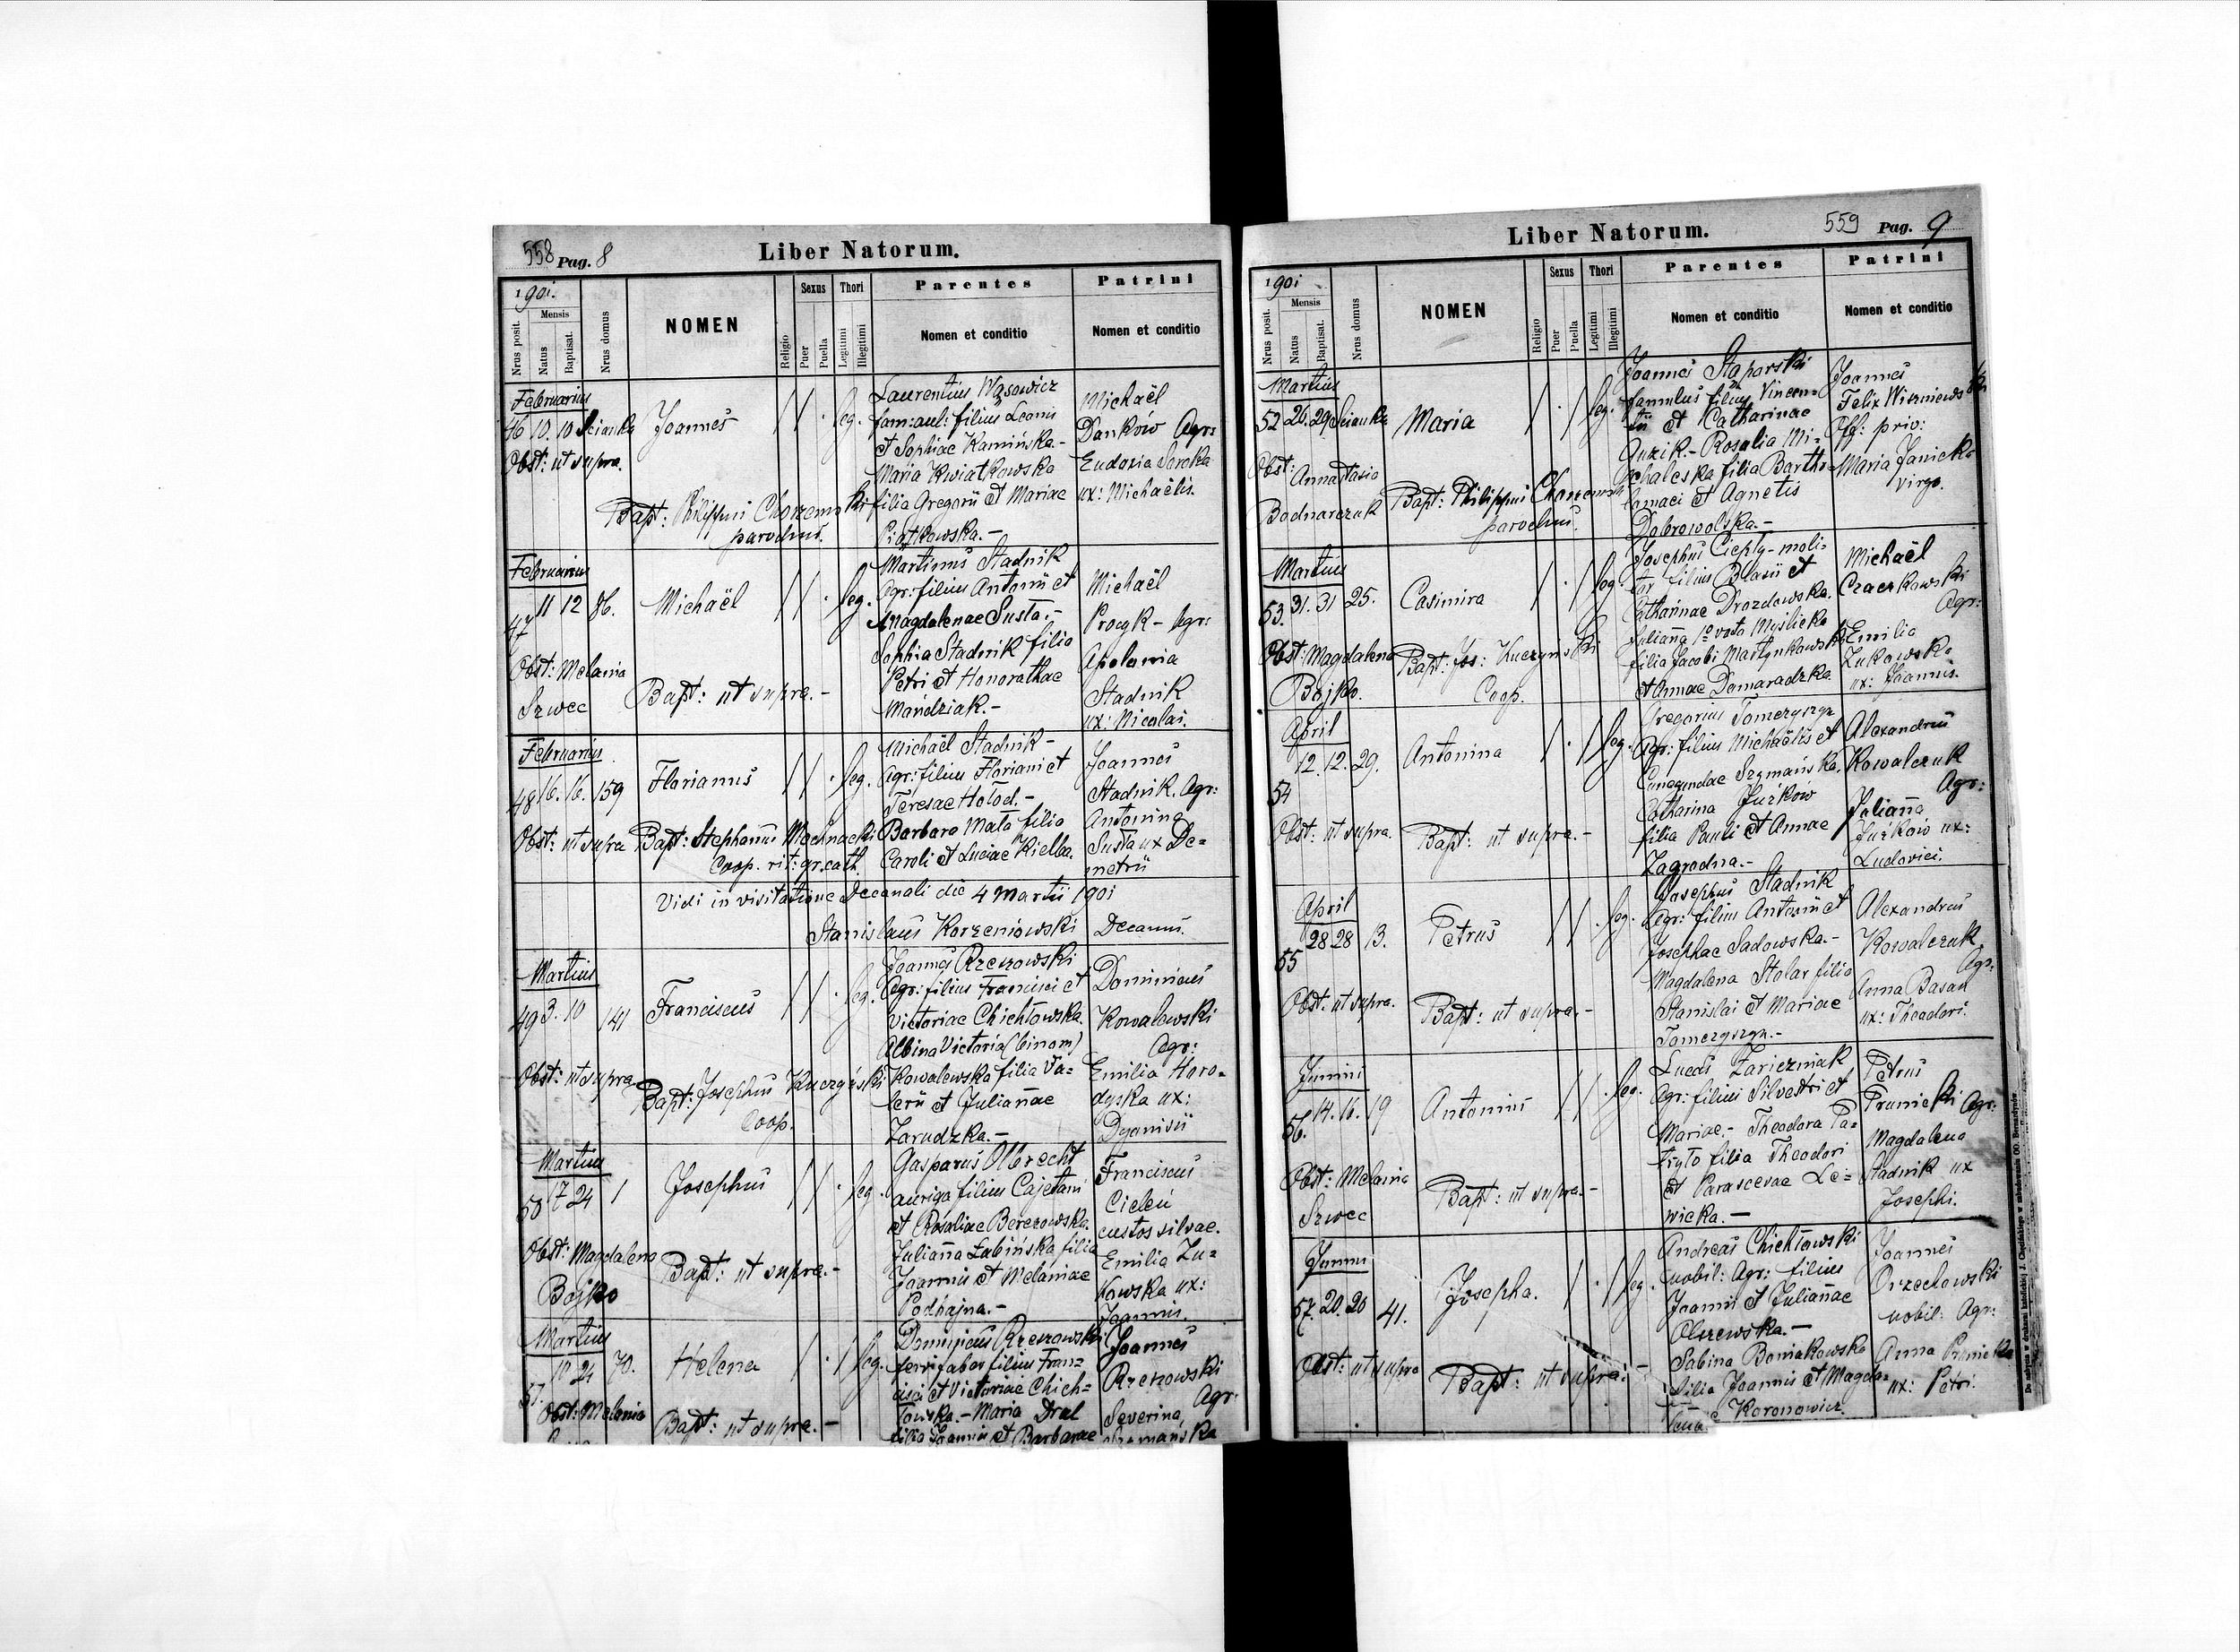 558 Pag. 8
Liber Natorum.
1901.
Nrus posit.
Mensis
Natus
Baptisat.
Nrus domus
NOMEN
Religio
Sexus
Puer
Puella
Thori
Legitimi
Illegitimi
Parentes
Nomen et conditio
Patrini
Nomen et conditio
Februarius
46 10. 10 Scianka
Joannes
leg.
Laurentius Wąsowicz
fam: aul: filius Leonis
et Sophiae Kamińska.-
Maria Kwiatkowska
filia Gregorii et Mariae
Piotrowska.-
Michaël
Danków Agr:
Eudoxia Soroka
ux: Michaëlis.
Obst: ut supra.
Bapt: Philippus Chorzemski
parochus.
Februarius
47 11 12 86.
Michaël
leg.
Martinus Stadnik
Agr: filius Antonii et
Magdalenae Susta.-
Sophia Stadnik filia
Petri et Honorathae
Mandziak.-
Michaël
Procyk - Agr:
Apolonia
Stadnik
ux: Nicolai.
Obst: Melania
Szwec
Bapt: ut supra.-
Februarius
48 16. 16. 159
Florianus
leg.
Michaël Stadnik -
Agr: filius Floriani et
Teresae Hołod.-
Barbara Mała filia
Caroli et Luciae Kiełba.
Joannes
Stadnik. Agr:
Antonina
Susta ux De=
metrii
Obst: ut supra
Bapt: Stephanus Machnacki
Coop. rit: gr. cath.
Vidi in visitatione Decanali die 4 Martii 1901
Stanislaus Korzeniowski Decanus.
Martius
49 3. 10 141
Franciscus
leg.
Joannes Rzeszowski
Agr: filius Francisci et
Victoriae Chichłowska.
Albina Victoria (binom)
Kowalewska filia Va=
lerii et Julianae
Zarudzka.-
Dominicus
Kowalewski
Agr:
Emilia Horo=
dyska ux:
Dyonisii
Obst: ut supra
Bapt: Josephus Kuczyński
Coop.
Martius
50 7 24 1
Josephus
leg.
Gasparus Olbrecht
auriga filius Cajetani
et Rosaliae Berezowska.
Julianna Łabińska filia
Joannis et Melaniae
Podhajna.-
Franciscus
Cieleń
custos silvae.
Emilia Zu=
kowska ux:
Joannis.
Obst: Magdalena
Bojko
Bapt: ut supra.-
Martius
51. 10 24 70.
Helena
leg.
Dominicus Rzeszowski
ferrifaber filius Fran=
cisci et Victoriae Chich=
łowska.- Maria Dral
filia Joannis et Barbarae
Joannes
Rzeszowski
Agr:
Severina
Obst: Melania
Bapt: ut supra.-
559 Pag. 9
Liber Natorum.
1901
Nrus posit.
Mensis
Natus
Baptisat.
Nrus domus
NOMEN
Religio
Sexus
Puer
Puella
Thori
Legitimi
Illegitimi
Parentes
Nomen et conditio
Patrini
Nomen et conditio
Martius
52 26. 29. Scianka
Maria
leg.
Joannes Staparski
famulus filius Vincen=
tii et Catharinae
Guzik.- Rosalia Mi=
chaleska filia Bartho=
lomaei et Agnetis
Dobrowolska.-
Joannes
Felix Wiszniewski
Off: priv:
Maria Janicka
virgo.
Obst: Annastasia
Bodnarczuk
Bapt: Philippus Chorzemski
parochus.
Martius
53. 31. 31 25.
Casimira
leg.
Josephus Ciepły - moli=
tor filius Blasii et
Catharinae Drozdowska.
Julianna 1º voto Myślicka
filia Jacobi Martynkowski
et Annae Domaradzka.
Michaël
Czaczkowski
Agr:
Emilia
Zukowska
ux: Joannis.
Obst: Magdalena
Bojko.
Bapt: Jos: Kuczyński
Coop.
April
54 12. 12. 29.
Antonina
leg.
Gregorius Tomczyszyn
Agr: filius Michaëlis et
Cunegundae Szymańska.
Catharina Jurków
filia Pauli et Annae
Zagrodna.-
Alexandrus
Kowalczuk
Agr:
Julianna
Jurków ux:
Ludovici.
Obst: ut supra.
Bapt: ut supra.-
April
55 28 28 13.
Petrus
leg.
Josephus Stadnik
Agr: filius Antonii et
Josephae Sadowska.-
Magdalena Stolar filia
Stanislai et Mariae
Tomczyszyn.-
Alexandrus
Kowalczuk
Agr:
Anna Basan
ux: Theodori.
Obst: ut supra.
Bapt: ut supra.-
Junius
56. 14. 16. 19
Antonius
leg.
Lucas Zariczniak
Agr: filius Silvestri et
Mariae.- Theodora Pa=
tryło filia Theodori
et Parascevae Le=
wicka.-
Petrus
Prunicki Agr:
Magdalena
Stadnik ux
Josephi.
Obst: Melania
Szwec
Bapt: ut supra.-
Junius
57. 20. 20 41.
Josepha.
leg.
Andreas Chichłowski
nobil: Agr: filius
Joannis et Julianae
Olszewska.-
Sabina Boniakowska
filia Joannis et Magda=
lenae Koronowicz.
Joannes
Orzechowski
nobil: Agr:
Anna Prunicka
ux: Petri.
Obst: ut supra
Bapt: ut supra.-